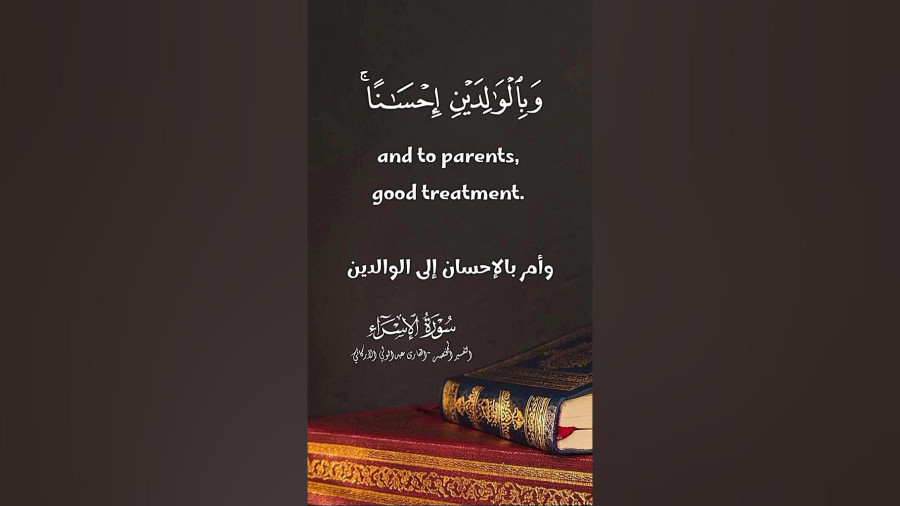 وَبِٱلۡوَٰلِدَيۡنِ إِحۡسَٰنًاۚ
and to parents,
good treatment.
وأمر بالإحسان إلى الوالدين
سُورَةُ الإِسۡرَاءِ
التفسير المختصر - القارئ عبدالولي الأركاني